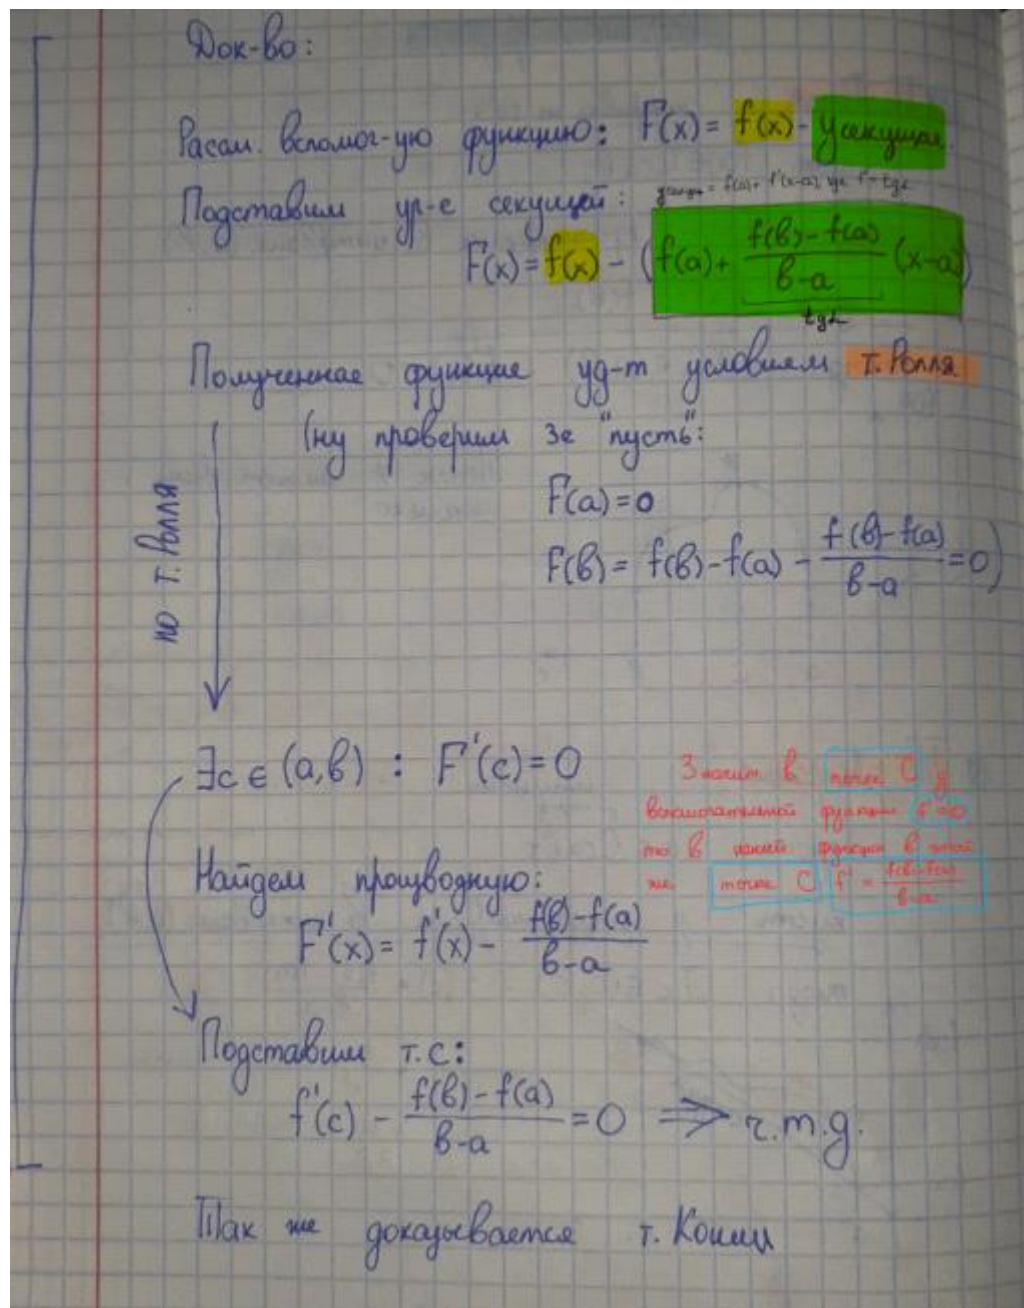 Док-во:
Рассм. вспомог-ую функцию: F(x) = f(x) - yсекущая
Подставим ур-е секущей:
F(x) = f(x) - (f(a) + f(в) - f(a) / в-a (x-a))
tgα
Полученная функция уд-т условиям т. Ролля
(ну проверим 3е "пусть":
F(a) = 0
F(в) = f(в) - f(a) - f(в) - f(a) / в-a = 0)
по т. Ролля
∃c ∈ (a, в) : F'(c) = 0
Значит в точке C у
вспомогательной функции f'=0,
то в нашей функции в этой
же точке C f' = f(в) - f(a) / в-a
Найдем производную:
F'(x) = f'(x) - f(в) - f(a) / в-a
Подставим т. c:
f'(c) - f(в) - f(a) / в-a = 0 ⇒ ч.т.д.
Так же доказывается т. Коши